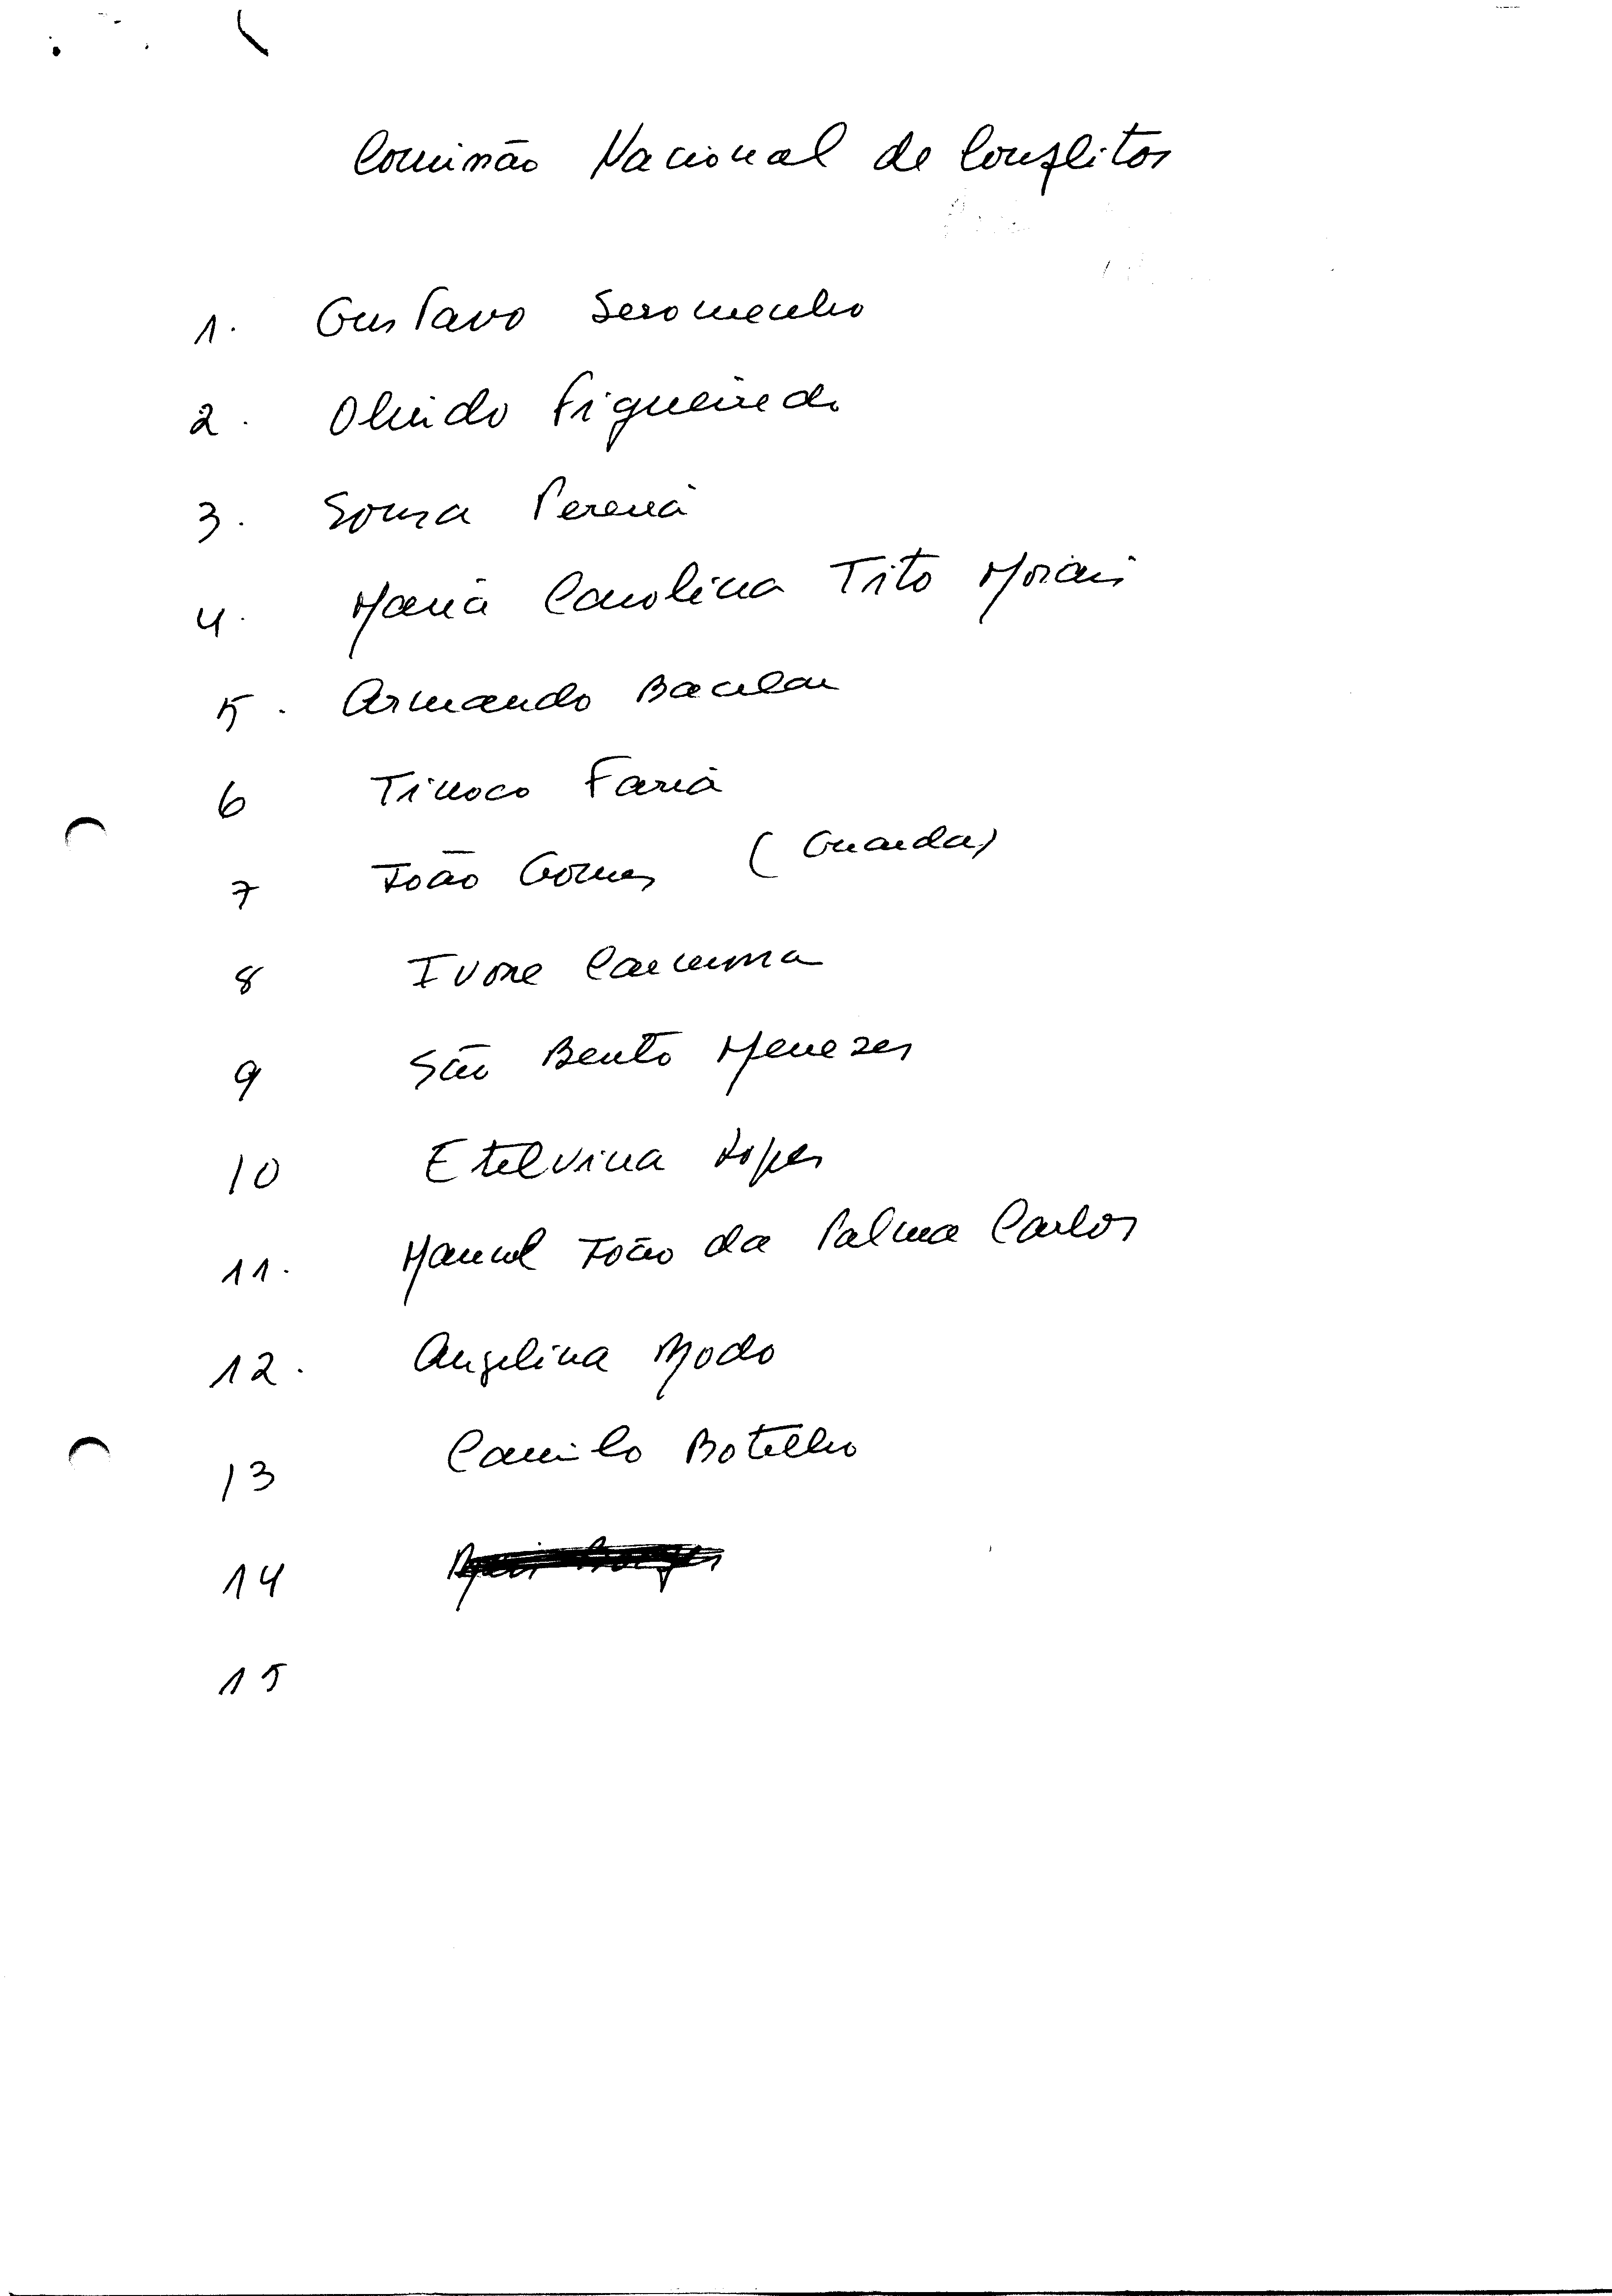 Comissão Nacional de Conflitos
1. Gustavo Soromenho
2. Olindo Figueiredo
3. Sousa Pereira
4. Maria Carolina Tito Morais
5. Armando Bacelar
6 Tinoco Faria
7 João Gomes (Guarda)
8 Ivone
9 São Bento Menezes
10 Etelvina Lopes
11. Manuel João da Palma Carlos
12. Angelina Modo
13 Camilo Botelho
14
15